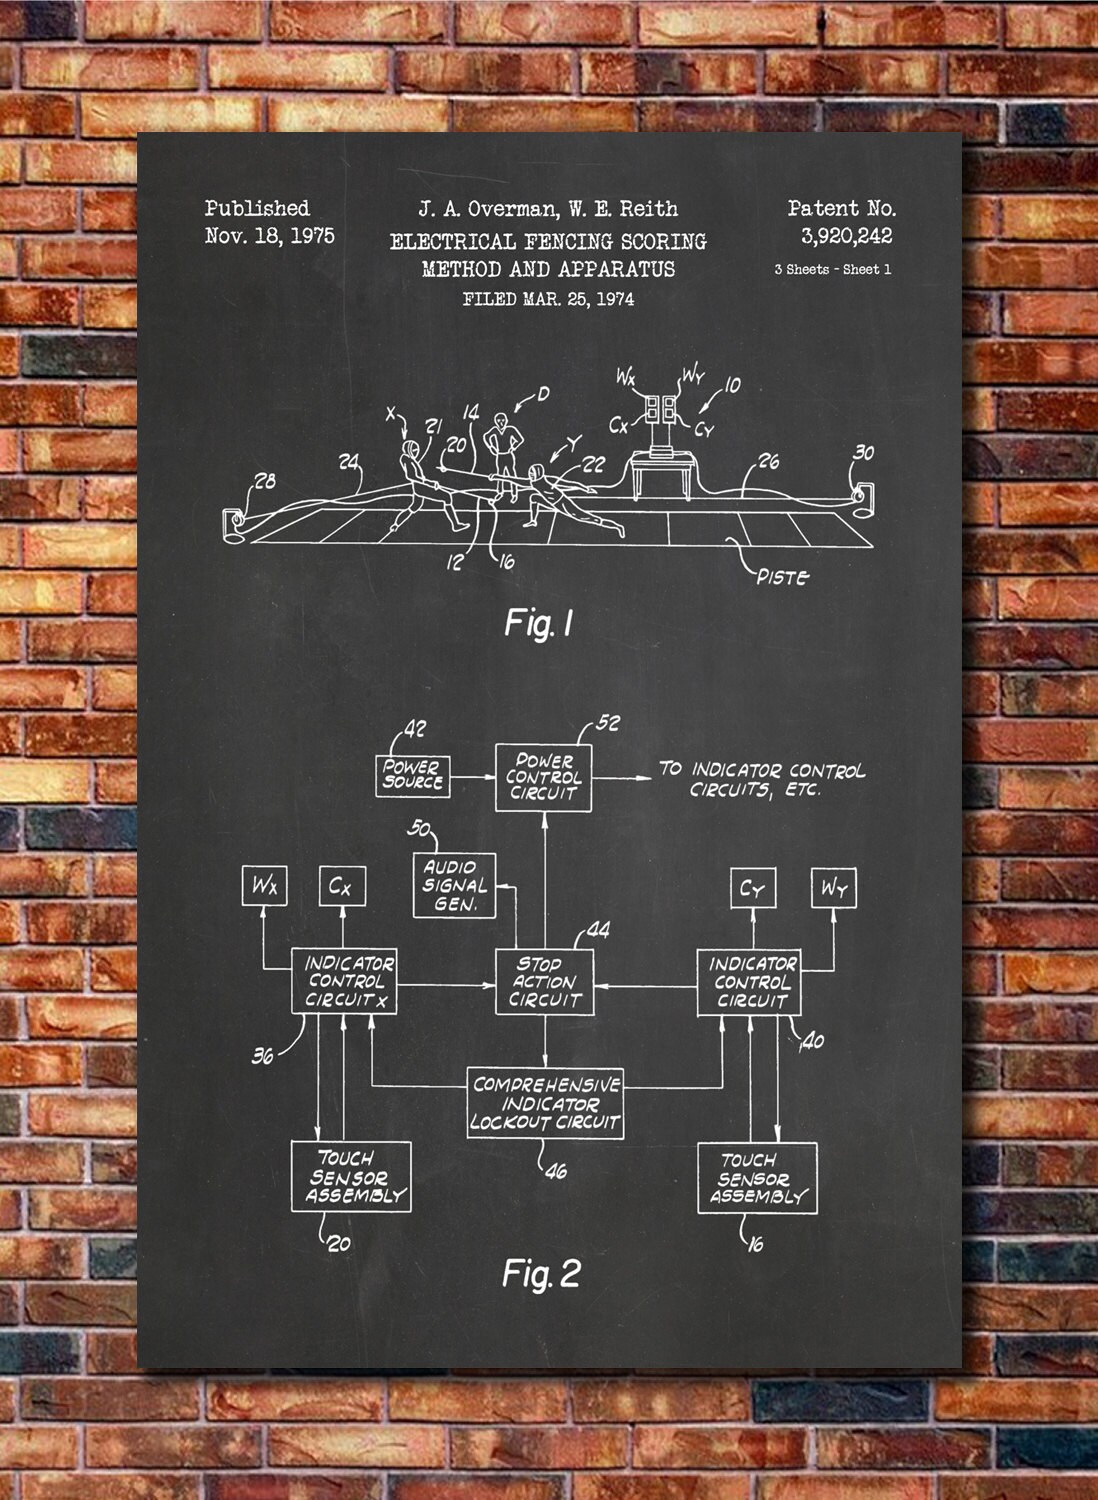 Published
Nov. 18, 1975
J. A. Overman, W. E. Reith
ELECTRICAL FENCING SCORING
METHOD AND APPARATUS
FILED MAR. 25, 1974
Patent No.
3,920,242
3 Sheets - Sheet 1
Wx
Wy
10
Cx
Cy
X
21
14
D
20
Y
22
24
26
28
30
12
16
PISTE
Fig. 1
42
POWER
SOURCE
52
POWER
CONTROL
CIRCUIT
TO INDICATOR CONTROL
CIRCUITS, ETC.
50
AUDIO
SIGNAL
GEN.
Wx
Cx
Cy
Wy
INDICATOR
CONTROL
CIRCUIT X
36
44
STOP
ACTION
CIRCUIT
INDICATOR
CONTROL
CIRCUIT
40
COMPREHENSIVE
INDICATOR
LOCKOUT CIRCUIT
46
TOUCH
SENSOR
ASSEMBLY
20
TOUCH
SENSOR
ASSEMBLY
16
Fig. 2